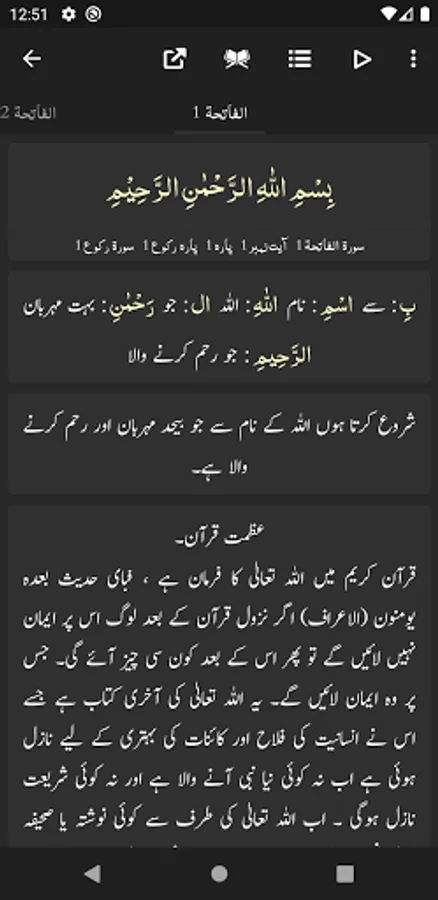 12:51
الفاتحة 1
الفاتحة 2
بِسْمِ اللهِ الرَّحْمٰنِ الرَّحِيْمِ
سورة الفاتحة 1 آیت نمبر 1 پارہ 1 پارہ رکوع 1 سورة رکوع 1
بِ: سے اسْمِ: نام اللهِ: اللہ ال: جو رَحْمٰنِ: بہت مہربان
الرَّحِيمِ: جو رحم کرنے والا
شروع کرتا ہوں اللہ کے نام سے جو بیحد مہربان اور رحم کرنے
والا ہے۔
عظمت قرآن۔
قرآن کریم میں اللہ تعالٰی کا فرمان ہے ، فبای حدیث بعدہ
یومنون (الاعراف) اگر نزول قرآن کے بعد لوگ اس پر ایمان
نہیں لائیں گے تو پھر اس کے بعد کون سی چیز آئے گی۔ جس
پر وہ ایمان لائیں گے۔ یہ اللہ تعالٰی کی آخری کتاب ہے جسے
اس نے انسانیت کی فلاح اور کائنات کی بہتری کے لیے نازل
ہوئی ہے اب نہ کوئی نیا نبی آنے والا ہے اور نہ کوئی شریعت
نازل ہوگی ۔ اب اللہ تعالٰی کی طرف سے کوئی نوشتہ یا صحیفہ